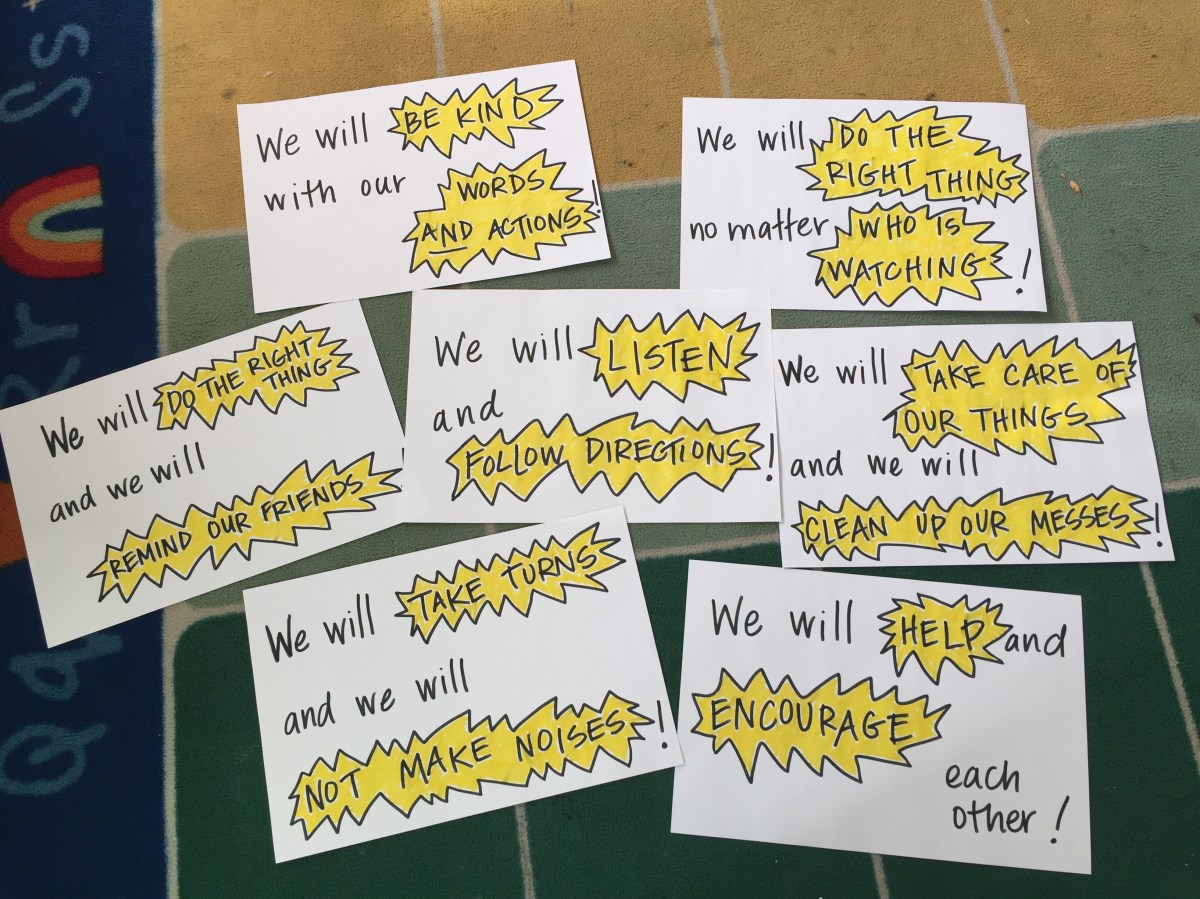 We will BE KIND
with our WORDS
AND ACTIONS!
We will DO THE
RIGHT THING
no matter WHO IS
WATCHING!
We will DO THE RIGHT
THING
and we will
REMIND OUR FRIENDS
We will LISTEN
and
FOLLOW DIRECTIONS!
We will TAKE CARE OF
OUR THINGS
and we will
CLEAN UP OUR MESSES!
We will TAKE TURNS
and we will
NOT MAKE NOISES!
We will HELP and
ENCOURAGE
each
other!
Ss
Rr
Qq